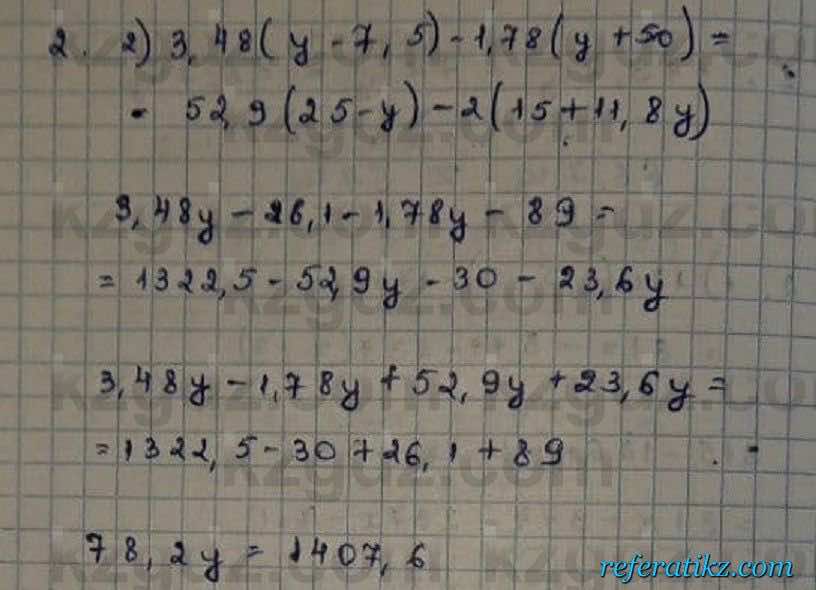 2. 2) 3,48(y-7,5)-1,78(y+50)=
= 52,9(25-y)-2(15+11,8y)
3,48y-26,1-1,78y-89=
=1322,5-52,9y-30-23,6y
3,48y-1,78y+52,9y+23,6y=
=1322,5-30+26,1+89
78,2y=1407,6
referatikz.com